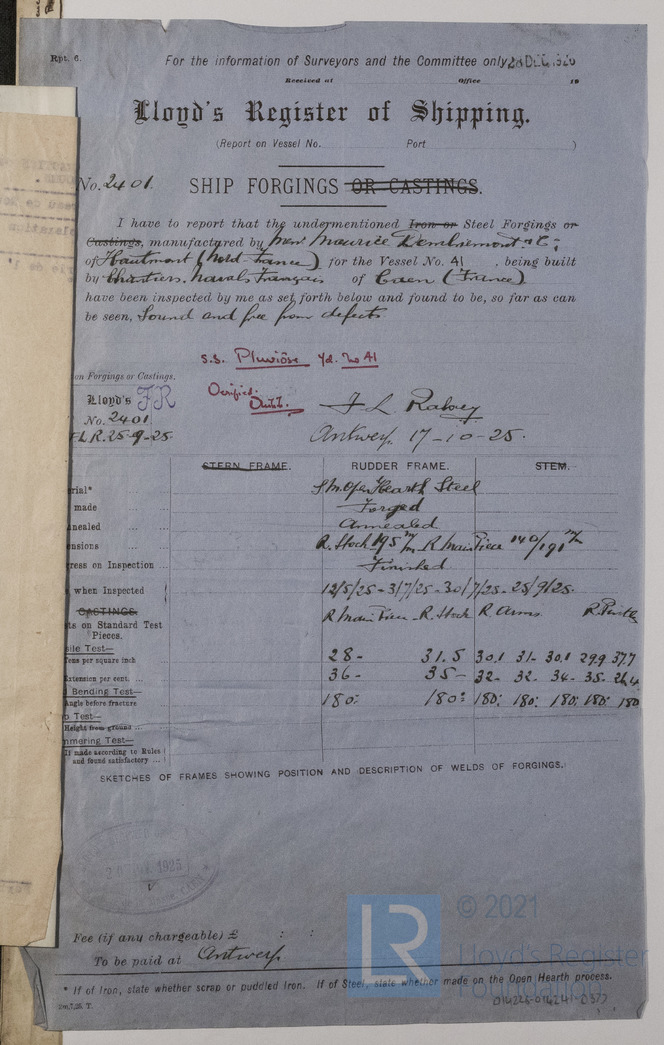 Rpt. 6.
For the information of Surveyors and the Committee only
Received at Office 19
Lloyd's Register of Shipping.
(Report on Vessel No. Port )
No. 2401. SHIP FORGINGS OR CASTINGS.
I have to report that the undermentioned Iron or Steel Forgings or
Castings, manufactured by Mess. Maurice & Co;
of Hautmont (Nord France) for the Vessel No. 41, being built
by Chantiers Navals Français of Caen (France)
have been inspected by me as set forth below and found to be, so far as can
be seen, Sound and free from defects.
s.s. Pluviôse Yd. No 41
on Forgings or Castings.
Verified.
Lloyd's FR
No. 2401
F L R. 25-9-25.
Antwerp. 17-10-25.
STERN FRAME. RUDDER FRAME. STEM.
rial* S.M. Open Hearth Steel
made Forged
nealed Annealed
ensions R. Stock 195 m/m R Main Piece 140/191 m/m
gress on Inspection Finished
when Inspected 12/5/25-3/7/25-30/7/25-25/9/25.
CASTINGS.
R Main Piece R. Stock R. Arms. R. Pintles
ts on Standard Test
Pieces.
sile Test—
Tons per square inch 28- 31.5 30.1 31- 30.1 29.9 37.7
Extension per cent. 36- 35- 32- 32. 34. 35. 26.4
d Bending Test—
Angle before fracture 180° 180° 180° 180° 180° 180° 180
p Test—
Height from ground
mmering Test—
If made according to Rules
and found satisfactory
SKETCHES OF FRAMES SHOWING POSITION AND DESCRIPTION OF WELDS OF FORGINGS.
1925
Fee (if any chargeable) £ : :
To be paid at Antwerp
* If of Iron, state whether scrap or puddled Iron. If of Steel, state whether made on the Open Hearth process.
2m,7,25. T.
LR
© 2021
Lloyd's Register
Foundation